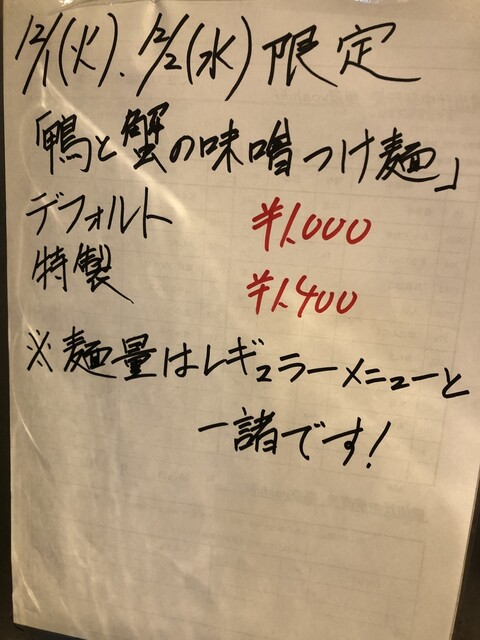 12/1(火)、12/2(水)限定
「鴨と蟹の味噌つけ麺」
デフォルト ¥1,000
特製 ¥1,400
※麺量はレギュラーメニューと
一諸です!